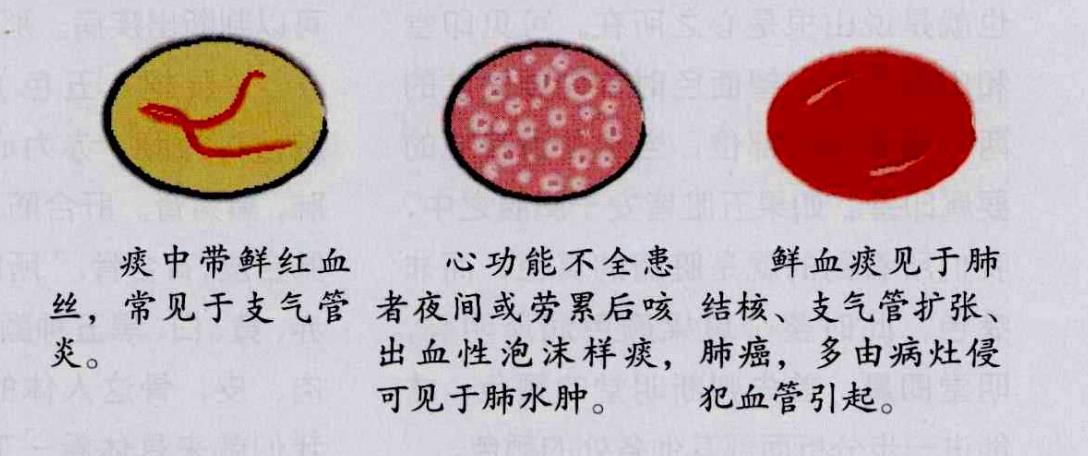 痰中带鲜红血
丝，常见于支气管
炎。
心功能不全患
者夜间或劳累后咳
出血性泡沫样痰，
可见于肺水肿。
鲜血痰见于肺
结核、支气管扩张、
肺癌，多由病灶侵
犯血管引起。